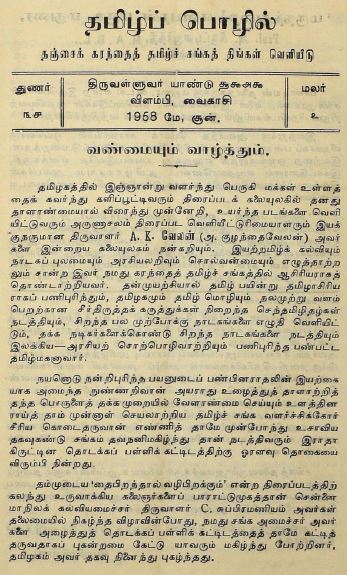 தமிழ்ப் பொழில்
தஞ்சைக் கரந்தைத் தமிழ்ச் சங்கத் திங்கள் வெளியீடு
துணர்
௩௪
திருவள்ளுவர் யாண்டு ௧௯௮௯
விளம்பி, வைகாசி
1958 மே, சூன்.
மலர்
௨
வண்மையும் வாழ்த்தும்.
தமிழகத்தில் இஞ்ஞான்று வளர்ந்து பெருகி மக்கள் உள்ளத்
தைக் கவர்ந்து களிப்பூட்டிவரும் திரைப்படக் கலையுலகில் தனது
தாளாண்மையால் விரைந்து முன்னேறி, உயர்ந்த படங்களை வெளி
யிட்டுவரும் அருணாசலம் திரைப்பட வெளியீட்டுரிமையாளரும் இயக்
குநருமான திருவாளர் A. K. வேலன் (அ. குழந்தைவேலன்) அவர்
களை இன்றைய கலையுலகம் நன்கறியும். இயற்றமிழ்க் கல்வியும்
நாடகப் புலமையும் அரசியலறிவும் சொல்வன்மையும் எழுத்தாற்ற
லும் சான்ற இவர் நமது கரந்தைத் தமிழ்ச் சங்கத்தில் ஆசிரியராகத்
தொண்டாற்றியவர். தன்முயற்சியால் தமிழ் பயின்று தமிழாசிரிய
ராகப் பணிபுரிந்தும், தமிழகமும் தமிழ் மொழியும் நலமுற்று வளம்
பெறற்கான சீர்திருத்தக் கருத்துக்கள் நிறைந்த செந்தமிழிதழ்கள்
நடத்தியும், சிறந்த பல முற்போக்கு நாடகங்களை எழுதி வெளியிட்
டும், தக்க நடிகர்களைக்கொண்டு சிறந்த நாடகங்களை நடத்தியும்
இலக்கிய—அரசியற் சொற்பொழிவாற்றியும் பணிபுரிந்த பண்பட்ட
தமிழ்மகனாவர்.
நயனொடு நன்றிபுரிந்த பயனுடைப் பண்பினராதலின் இயற்கை
யாக அமைந்த நுண்ணறிவான் அயராது உழைத்துத் தாளாற்றித்
தந்த பொருளைத் தக்க முறையில் வேளாண்மை செய்யும் உளத்தின
ராய்த் தாம் முன்னாள் செயலாற்றிய தமிழ்ச் சங்க வளர்ச்சிக்கோர்
சீரிய கொடைதருவான் எண்ணித் தாமே முன்போந்து உசாவிய
தகவுகண்டு சங்கம் தவநனிமகிழ்ந்து தான் நடத்திவரும் இராதா
கிருட்டின தொடக்கப் பள்ளிக் கட்டிடத்திற்கு ஓரளவு தொகையை
விரும்பி நின்றது.
தம்முடைய ‘தைபிறந்தால் வழிபிறக்கும்’ என்ற திரைப்படத்திற்
கலந்து உருவாக்கிய கலைஞர்களைப் பாராட்டுமுகத்தான் சென்னை
மாநிலக் கல்வியமைச்சர் திருவாளர் C. சுப்பிரமணியம் அவர்கள்
தலைமையில் நிகழ்ந்த விழாவின்போது, நமது சங்க அமைச்சர் அவர்
களை அழைத்துத் தொடக்கப் பள்ளிக் கட்டிடத்தைத் தாமே கட்டித்
தருவதாகப் புகன்றமை கேட்டு யாவரும் மகிழ்ந்து போற்றினர்,
தமிழகம் அவர் தகவு நினைந்து புகழ்ந்தது.